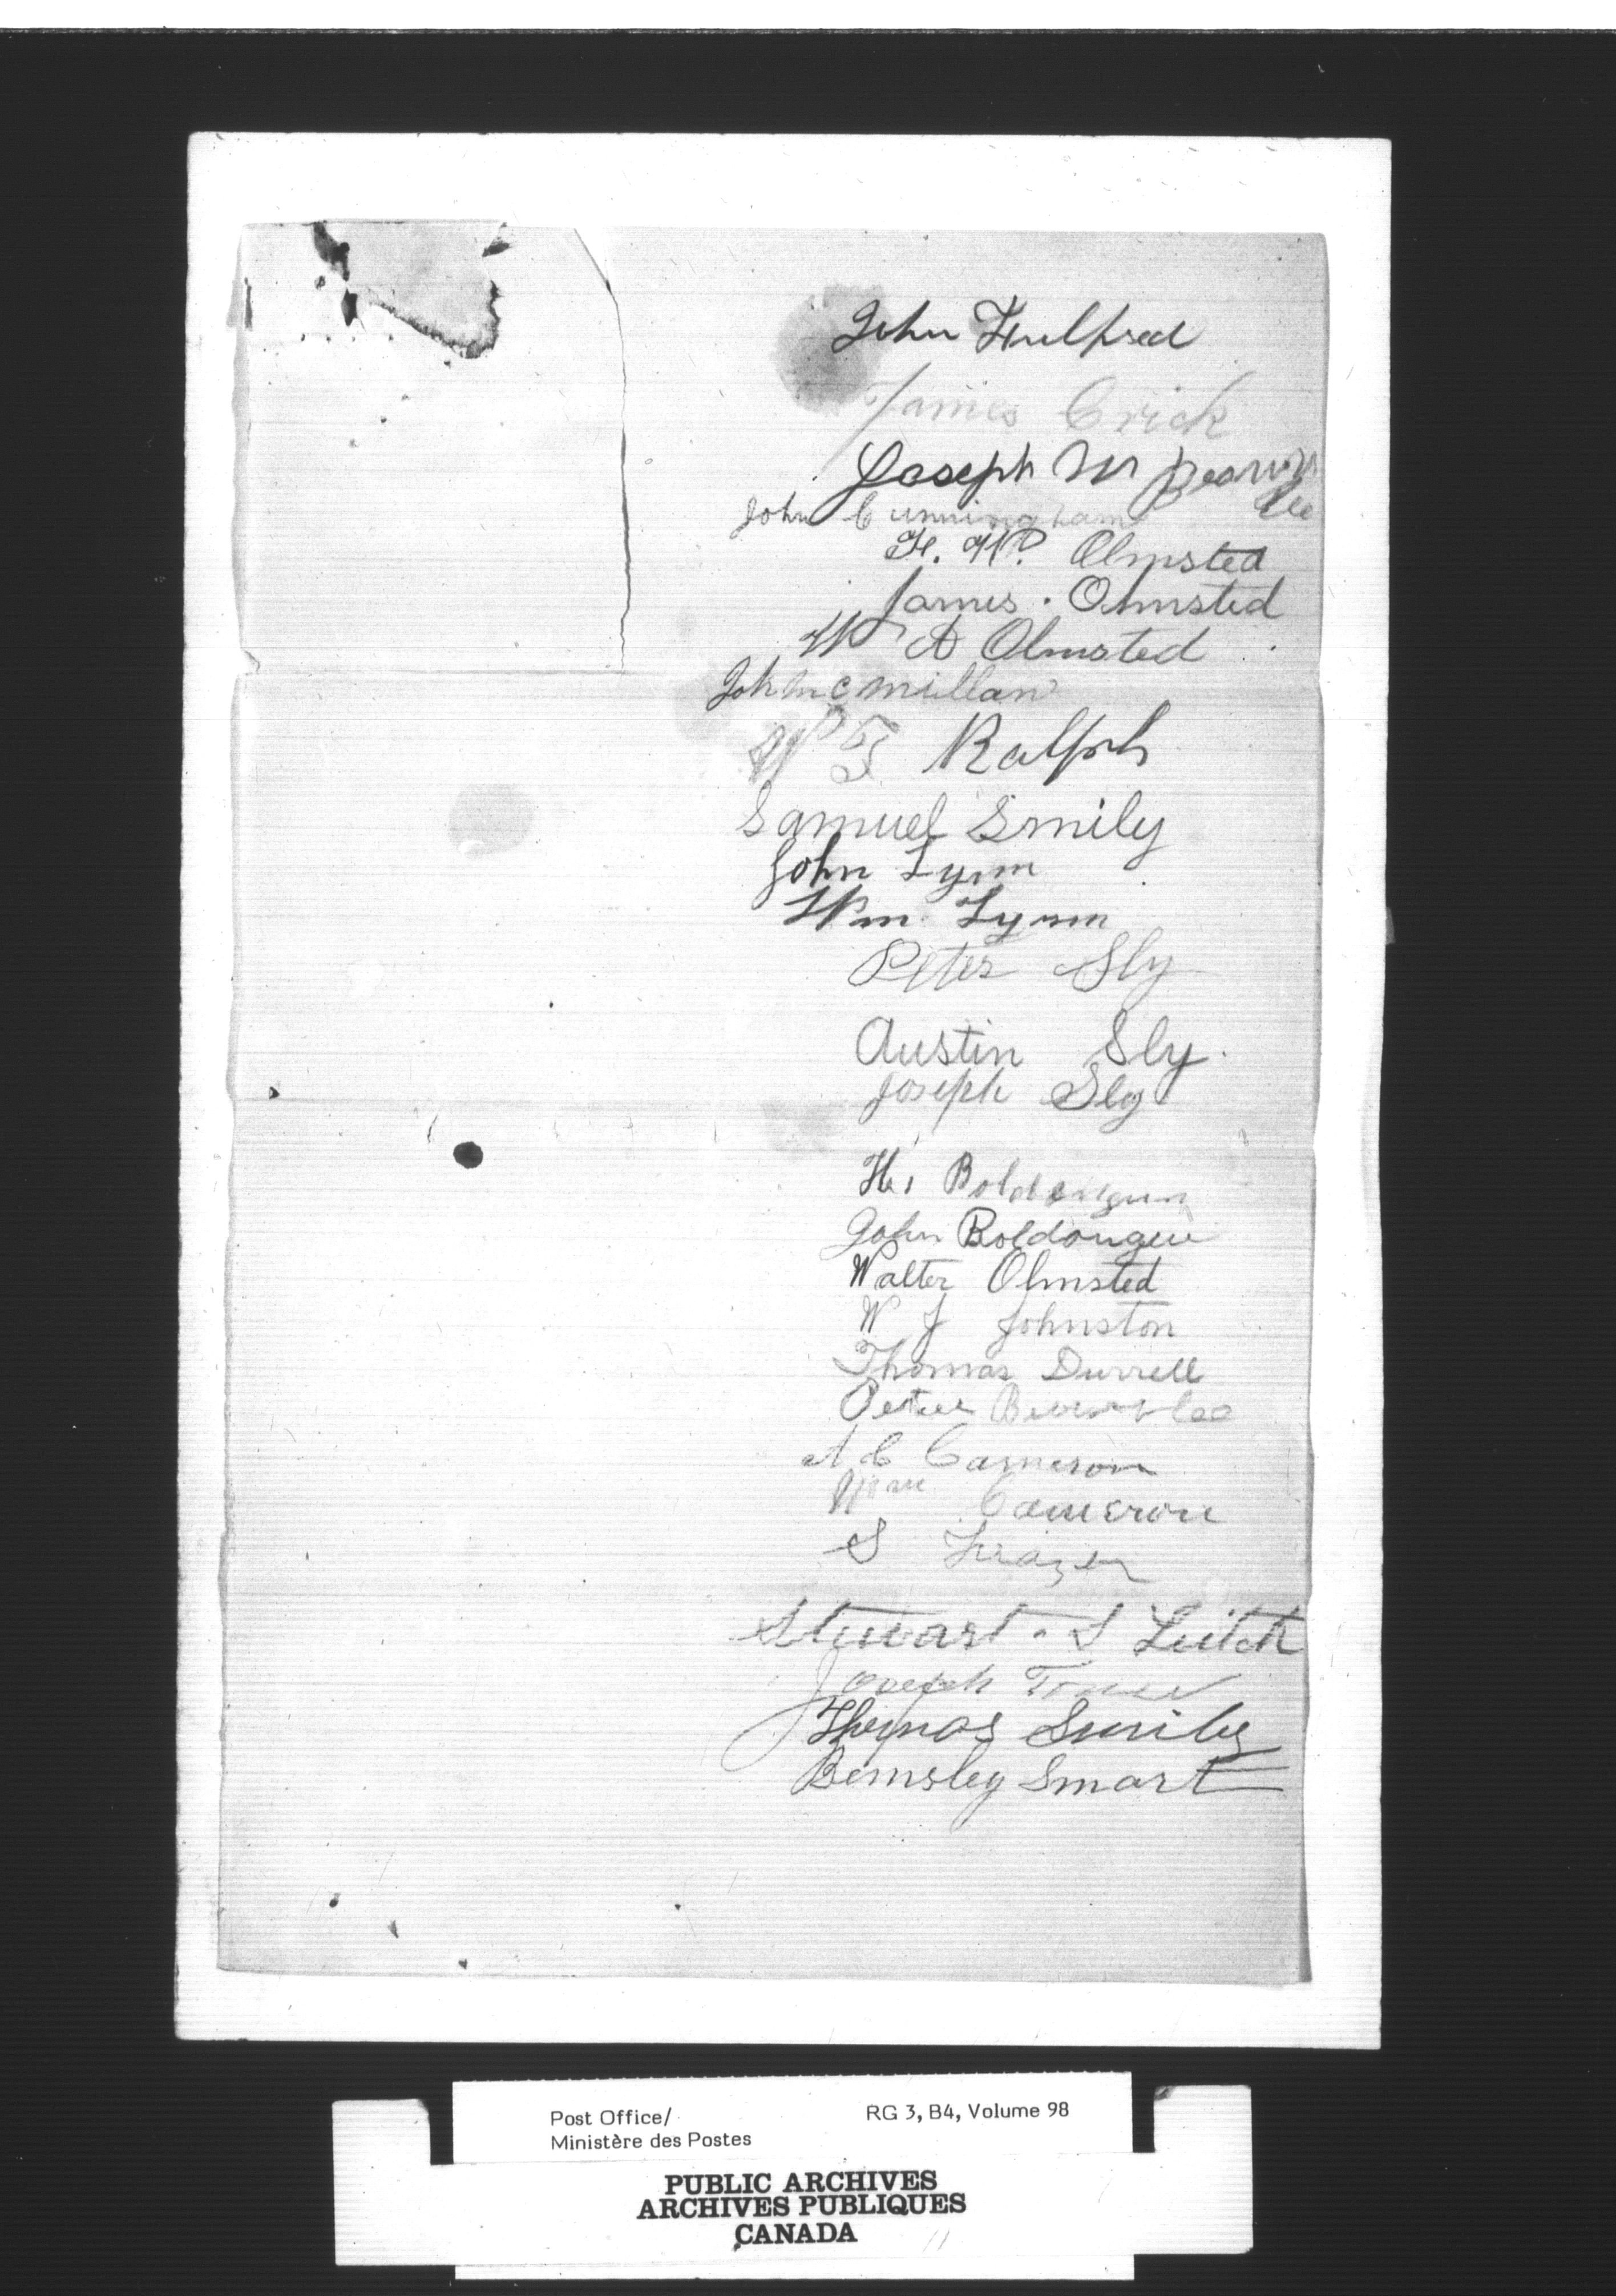 John
James Crick
Joseph M
John Cunningham
H. W. Olmsted
James. Olmsted
W A Olmsted
John Mcmillan
W T Ralph
Samuel Smily
John Lynn
Wm. Lynn
Peter Sly
Austin Sly.
Joseph Sly
H.
John Boldongue
Walter Olmsted
W J Johnston
Thomas Durrell
Peter
A C Cameron
Wm Cameron
S Frazer
Stewart. S Leitch
Joseph
Thomas Smiley
Bemsley Smart
Post Office/
Ministère des Postes
RG 3, B4, Volume 98
PUBLIC ARCHIVES
ARCHIVES PUBLIQUES
CANADA